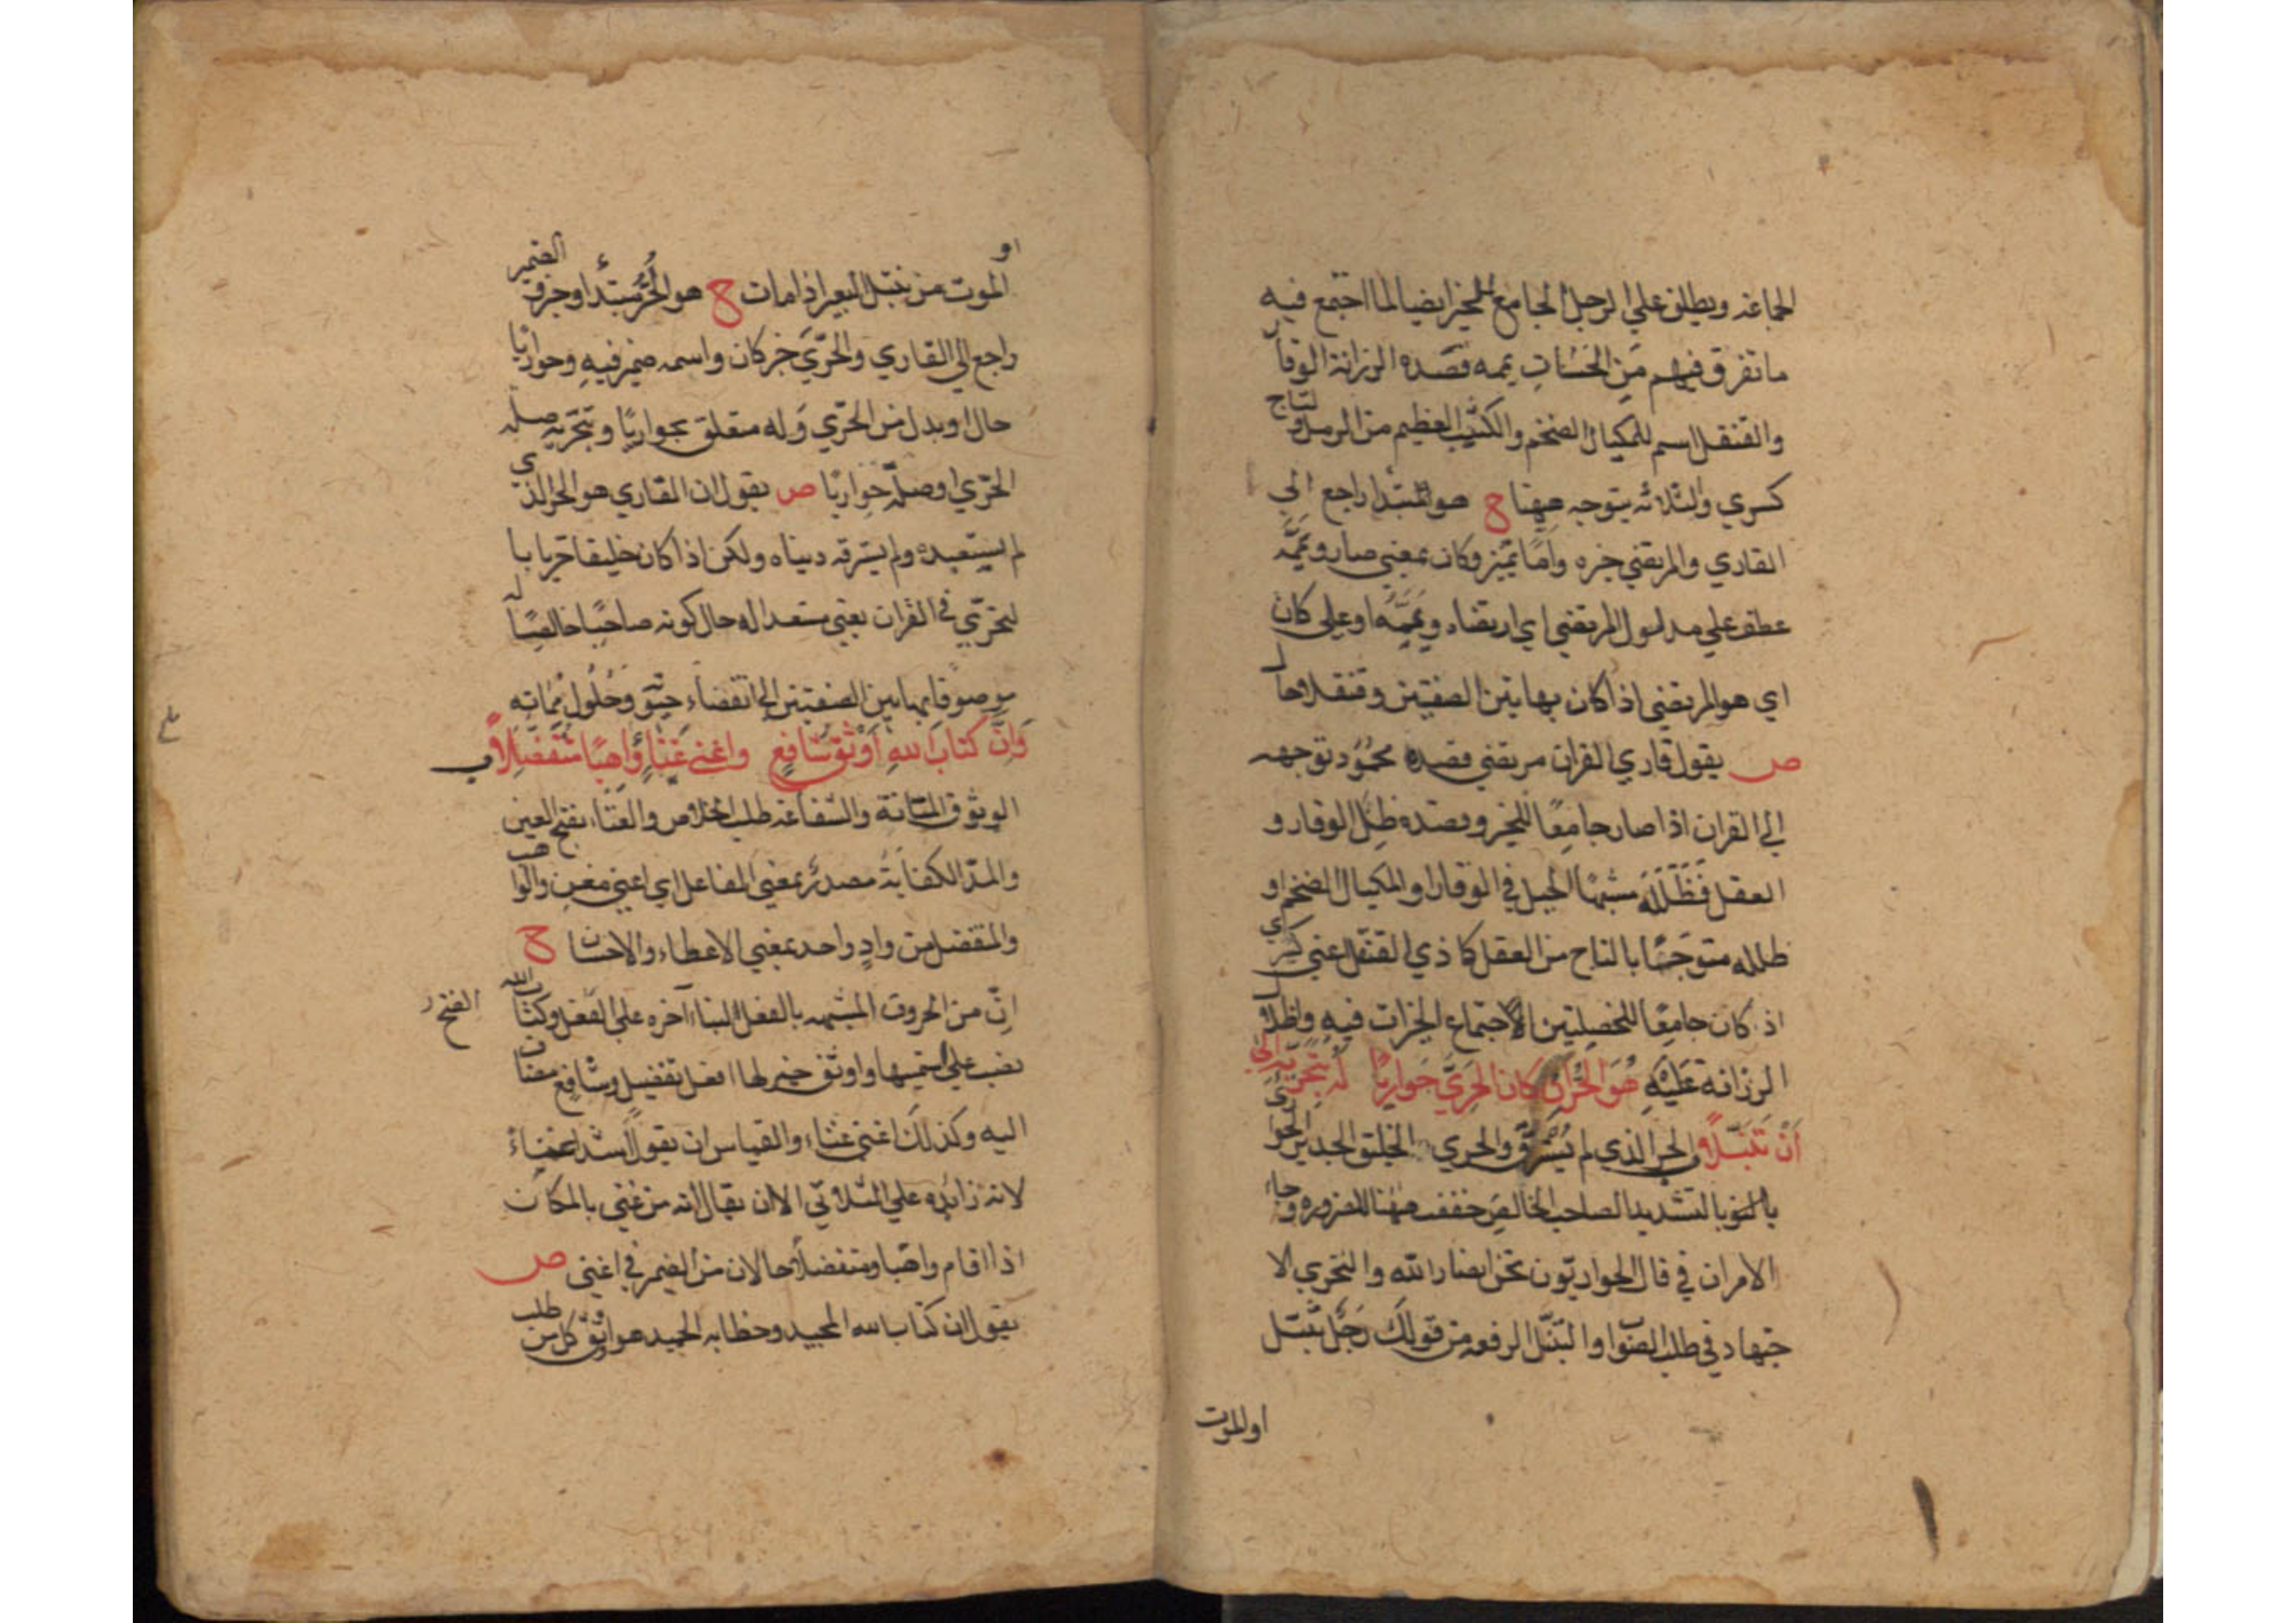 الجماعة ويطلق علي الرجل الجامع للخير ايضا لما اجتمع فيه
ما تفرق فيهم من الحسنات يممه قصده الرزانة الوقار
والقنقل اسم للمكيال الضخم والكثيب العظيم من الرمل ولتاج
كسري والثلاثه يتوجه ههنا ح هو المبتدا راجع الي
القاري والمرتضي خبره واما تميز وكان بمعني صار ويممه
عطف علي مدلول المرتضي اي ارتضاه ويممه او علي كان
اي هو المرتضي اذا كان بهاتين الصفتين وقنقلا حال
ص يقول قاري القران مرتضي قصده محمود توجهه
الي القران اذا صار جامعا للخير وقصده ظل الوقار و
العقل فظلله مشبها الجبل في الوقار او المكيال الضخم او
ظلله متوجا بالتاج من العقل كاذي القنقل اعني كسري
اذ كان جامعا للخصلتين لاجتماع الخيرات فيه وظل
الرزانة عليه هو الحر ان كان الحري حواريا له بتحريه الي
ان تنبلا ب الحر الذي لم يسترق والحري الخليق الجدير الحواري
بالتشديد الصاحب الخالص خفف ههنا للضرورة وجاء
الامران في قال الحواريون نحن انصار الله والتحري الا
جتهاد في طلب الصواب والتنبل الرفعه من قولك رجل تنبل
او الموت
او الموت من تنبل البعير اذا مات ح هو الحر مبتدأ وخبر الضمير
راجع الي القاري والحري خبر كان واسمه ضمير فيه وحواريا
حال او بدل من الحري وله متعلق بحواريا وبتحريه صله
الحري او صلة حواريا ص يقول ان القاري هو الحر الذي
لم يستعبده ولم يسترقه دنياه ولكن اذا كان خليقا حريا با
لتحري في القران يعني مستعدا له حال كونه صاحبا خالصا له
موصوفا بهاتين الصفتين الي انقضاء حيوته وحلول مماته
وان كتاب الله اوثق شافع واغني غناء واهبا متفضلا ب
الوثوق المتانة والشفاعة طلب الخلاص والغناء بفتح العين
والمد الكفاية مصدر بمعني الفاعل اي اغني مغن والواهب
والمتفضل من واد واحد بمعني الاعطاء والاحسان ح
ان من الحروف المشبهه بالفعل لبناء آخره علي الفتح وكتاب الله
الفتح
نصب علي اسميها واوثق خبر لها افعل تفضيل وشافع مضاف
اليه وكذلك اغني غناء والقياس ان يقول اشد اغناء
لانه زائده علي الثلاثي الا ان يقال انه من غني بالمكان
اذا اقام واهبا ومتفضلا حالان من الضمير في اغني ص
يقول ان كتاب الله المجيد وخطابه الحميد هو اوثق كل من طلب